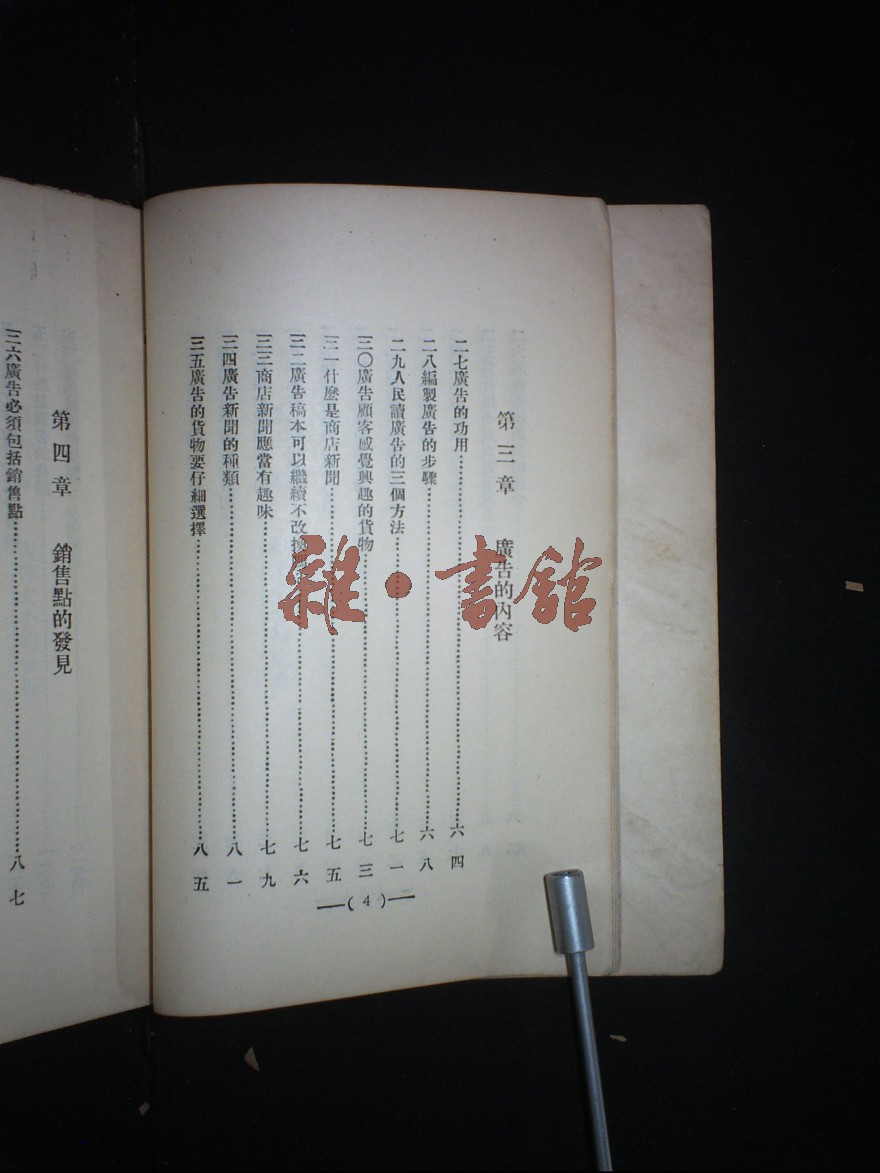 第三章 廣告的內容
二七廣告的功用……六四
二八編製廣告的步驟……六八
二九人民讀廣告的三個方法……七一
三〇廣告顧客感覺興趣的貨物……七三
三一什麼是商店新聞……七五
三二廣告稿本可以繼續不改換……七六
三三商店新聞應當有趣味……七九
三四廣告新聞的種類……八一
三五廣告的貨物要仔細選擇……八五
—(4)—
第四章 銷售點的發見
三六廣告必須包括銷售點……八七
雜·書館